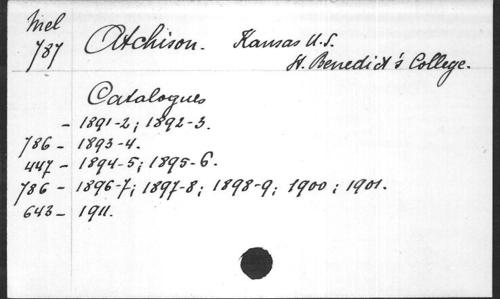 Mel
787 Atchison. Kansas U.S.
St. Benedict's College.
Catalogues
- 1891-2; 1892-3.
786 - 1893-4.
447 - 1894-5; 1895-6.
786 - 1896-7; 1897-8; 1898-9; 1900; 1901.
643 - 1911.